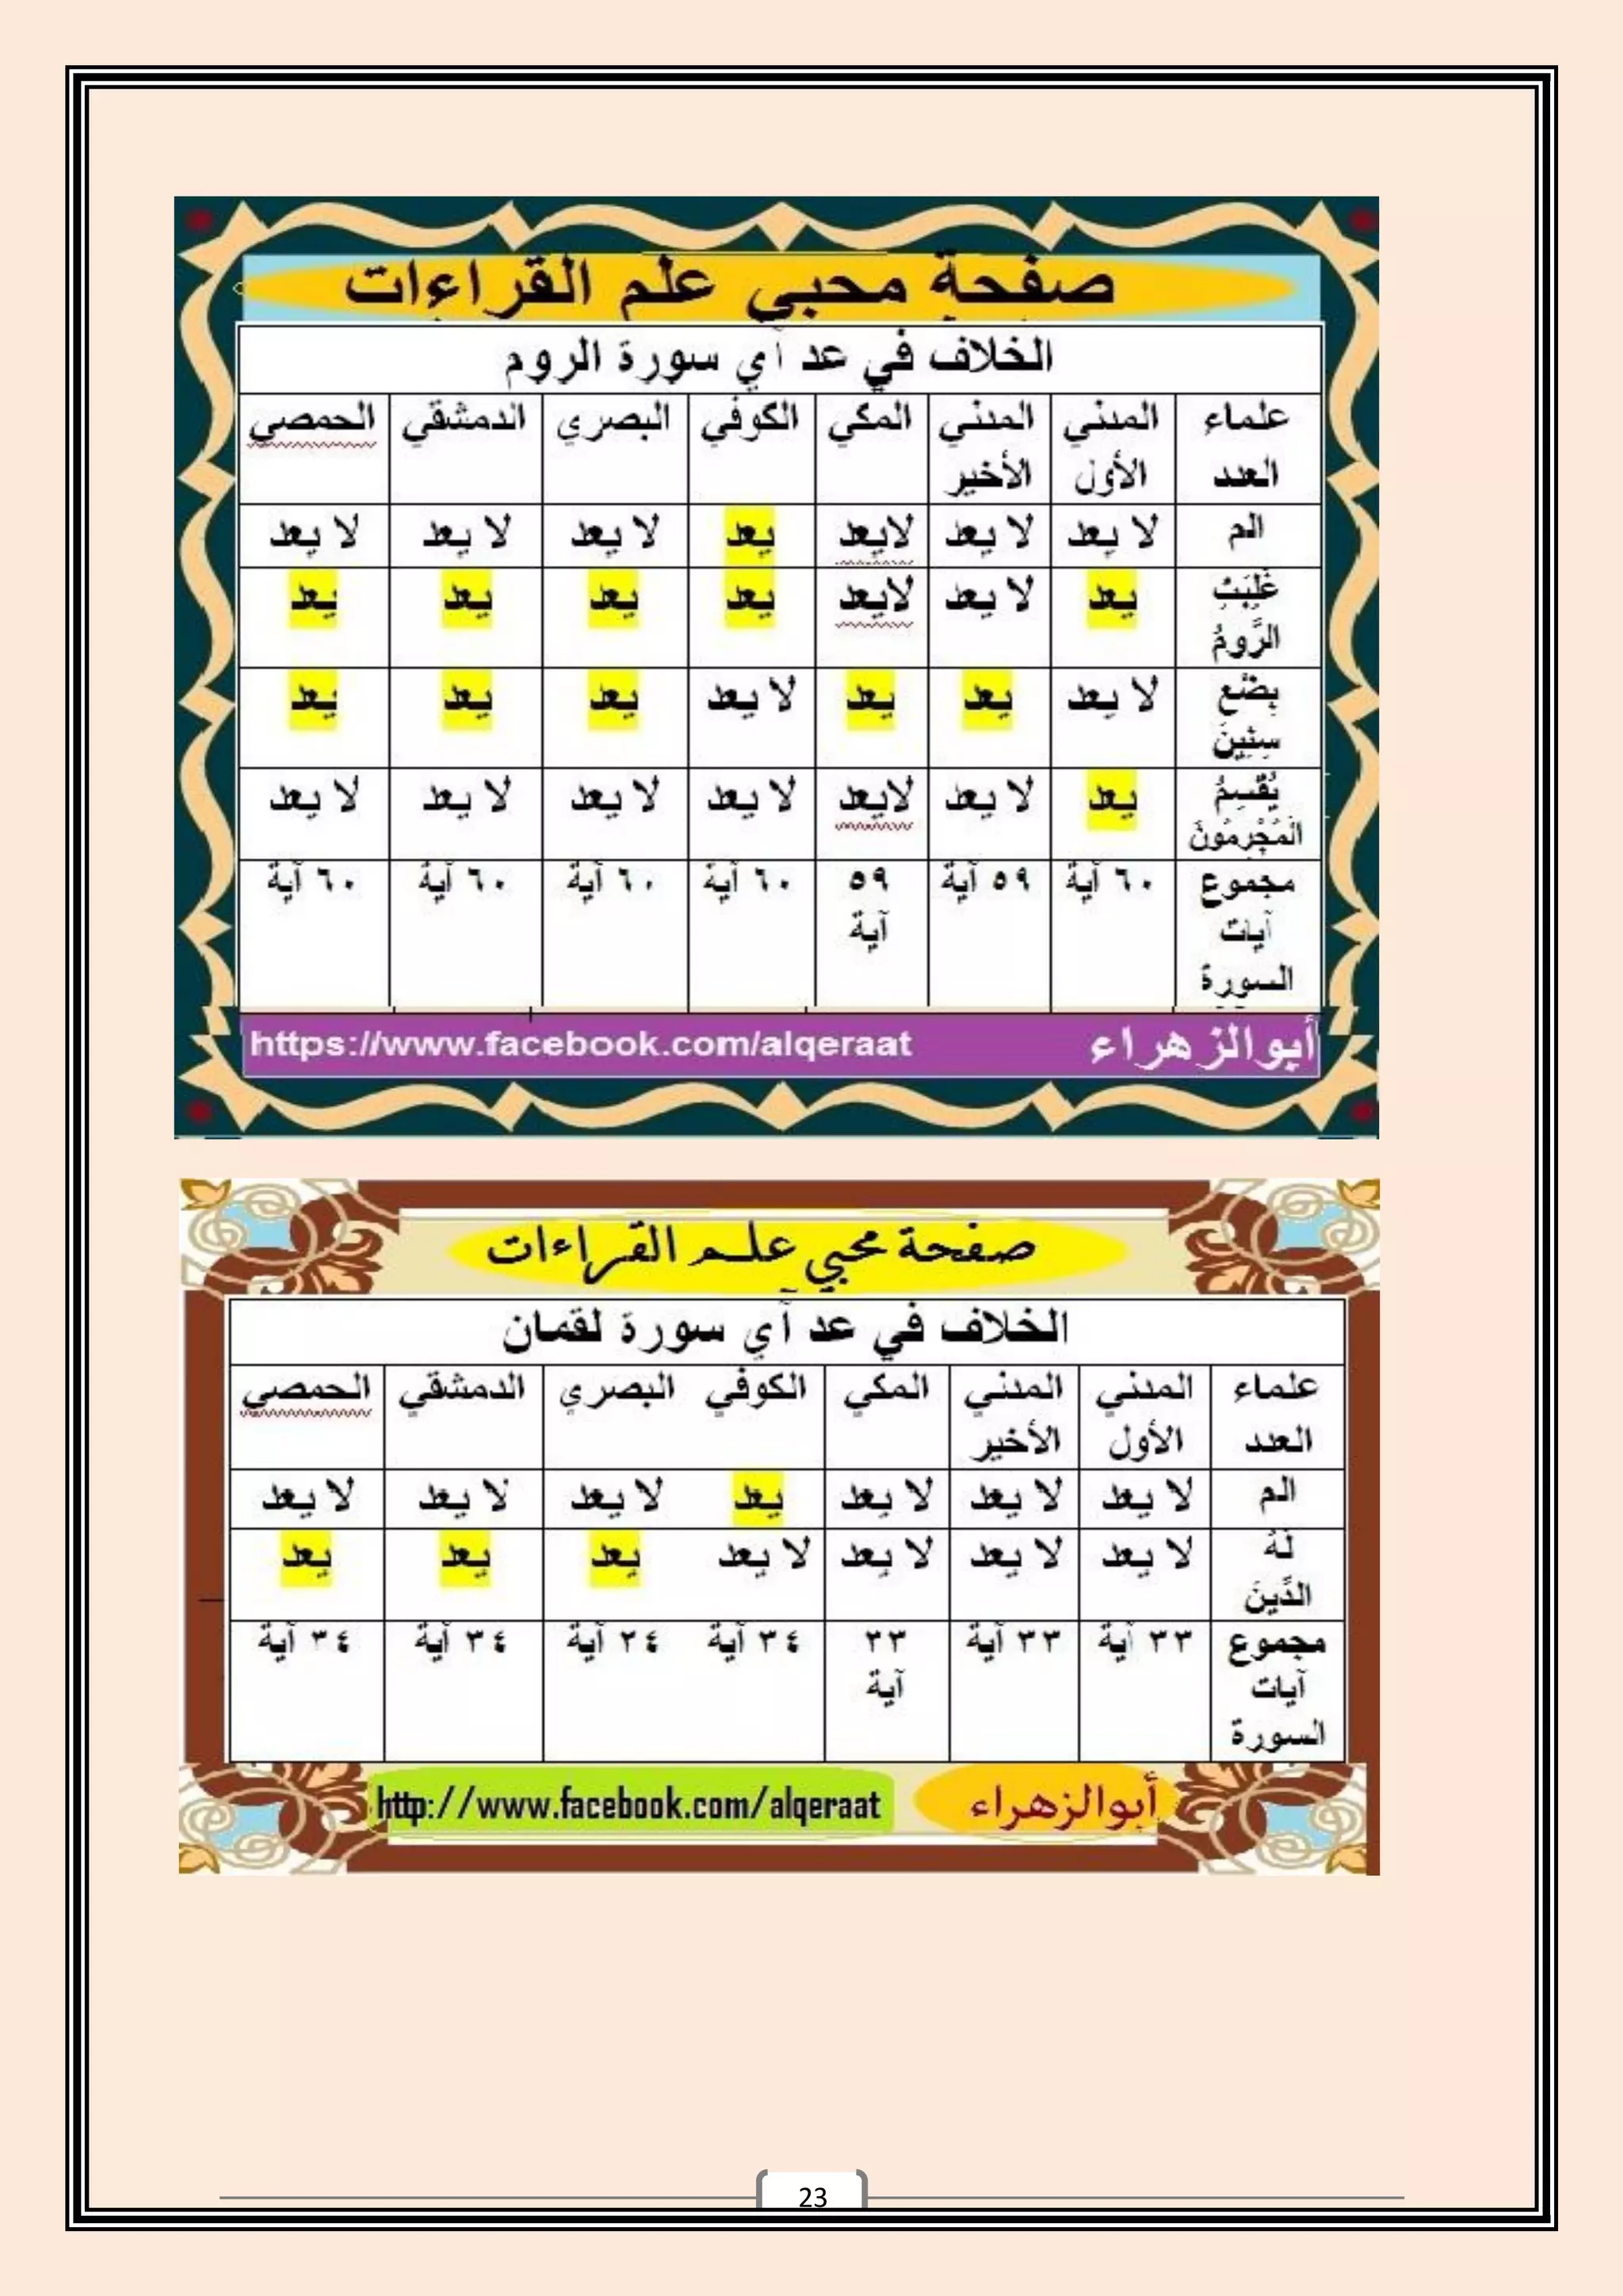 صفحة محبي علم القراءات
الخلاف في عد آي سورة الروم
علماء العدد المدني الأول المدني الأخير المكي الكوفي البصري الدمشقي الحمصي
الم لا يعد لا يعد لايعد يعد لا يعد لا يعد لا يعد
غُلِبَتِ الرُّومُ يعد لا يعد لايعد يعد يعد يعد يعد
بِضْعِ سِنِينَ لا يعد يعد يعد لا يعد يعد يعد يعد
يُقْسِمُ الْمُجْرِمُونَ يعد لا يعد لايعد لا يعد لا يعد لا يعد لا يعد
مجموع آيات السورة ٦٠ آية ٥٩ آية ٥٩ آية ٦٠ آية ٦٠ آية ٦٠ آية ٦٠ آية
أبوالزهراء https://www.facebook.com/alqeraat
صفحة محبي علم القراءات
الخلاف في عد آي سورة لقمان
علماء العدد المدني الأول المدني الأخير المكي الكوفي البصري الدمشقي الحمصي
الم لا يعد لا يعد لا يعد يعد لا يعد لا يعد لا يعد
لَهُ الدِّينَ لا يعد لا يعد لا يعد لا يعد يعد يعد يعد
مجموع آيات السورة ٣٣ آية ٣٣ آية ٣٣ آية ٣٤ آية ٣٤ آية ٣٤ آية ٣٤ آية
أبوالزهراء http://www.facebook.com/alqeraat
23